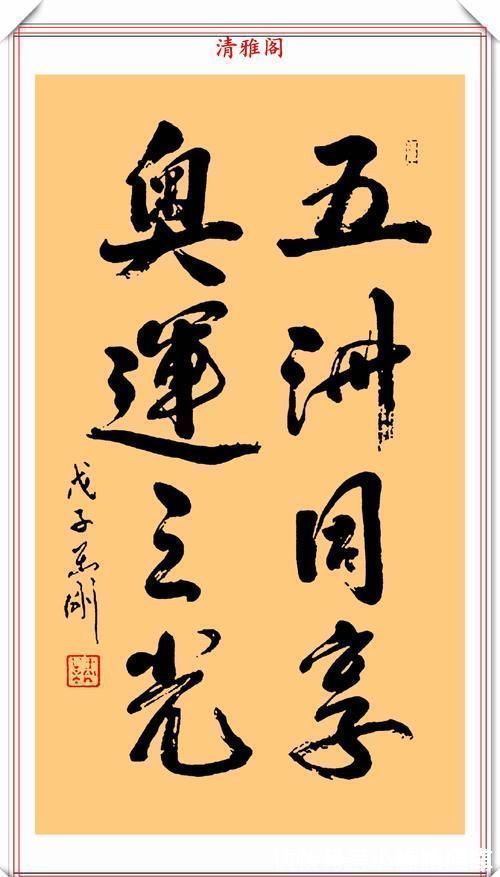 清雅阁
五洲同享
奥運之光
戊子